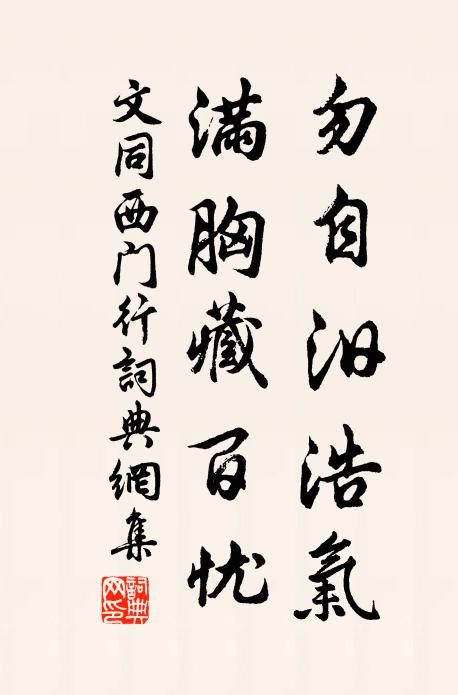 勿自汨浩氣
滿胸藏百忧
文同西门行詞典網集
詞典网印